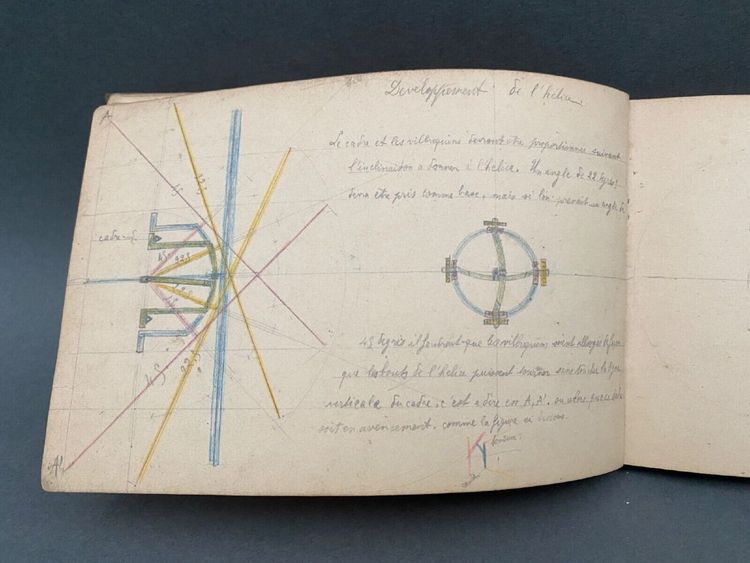 Developpement de l'helice
Le cadre et les vilbrequins devront être proportionnés suivant
l'inclinaison a donner à l'helice. Un angle de 22 degrés ½
devra etre pris comme base, mais si l'on prenait un angle de
45 degrés il faudrait que les vilbrequins soient allongés de facon
que les bouts de l'helice puissent tourner sans toucher la ligne
verticale du cadre, c'est a dire en A, A'. ou alors que ce
soit en avancement. comme la figure ci dessous.
A
45
22,5
cadre
45
22,5
45
22,5
A'